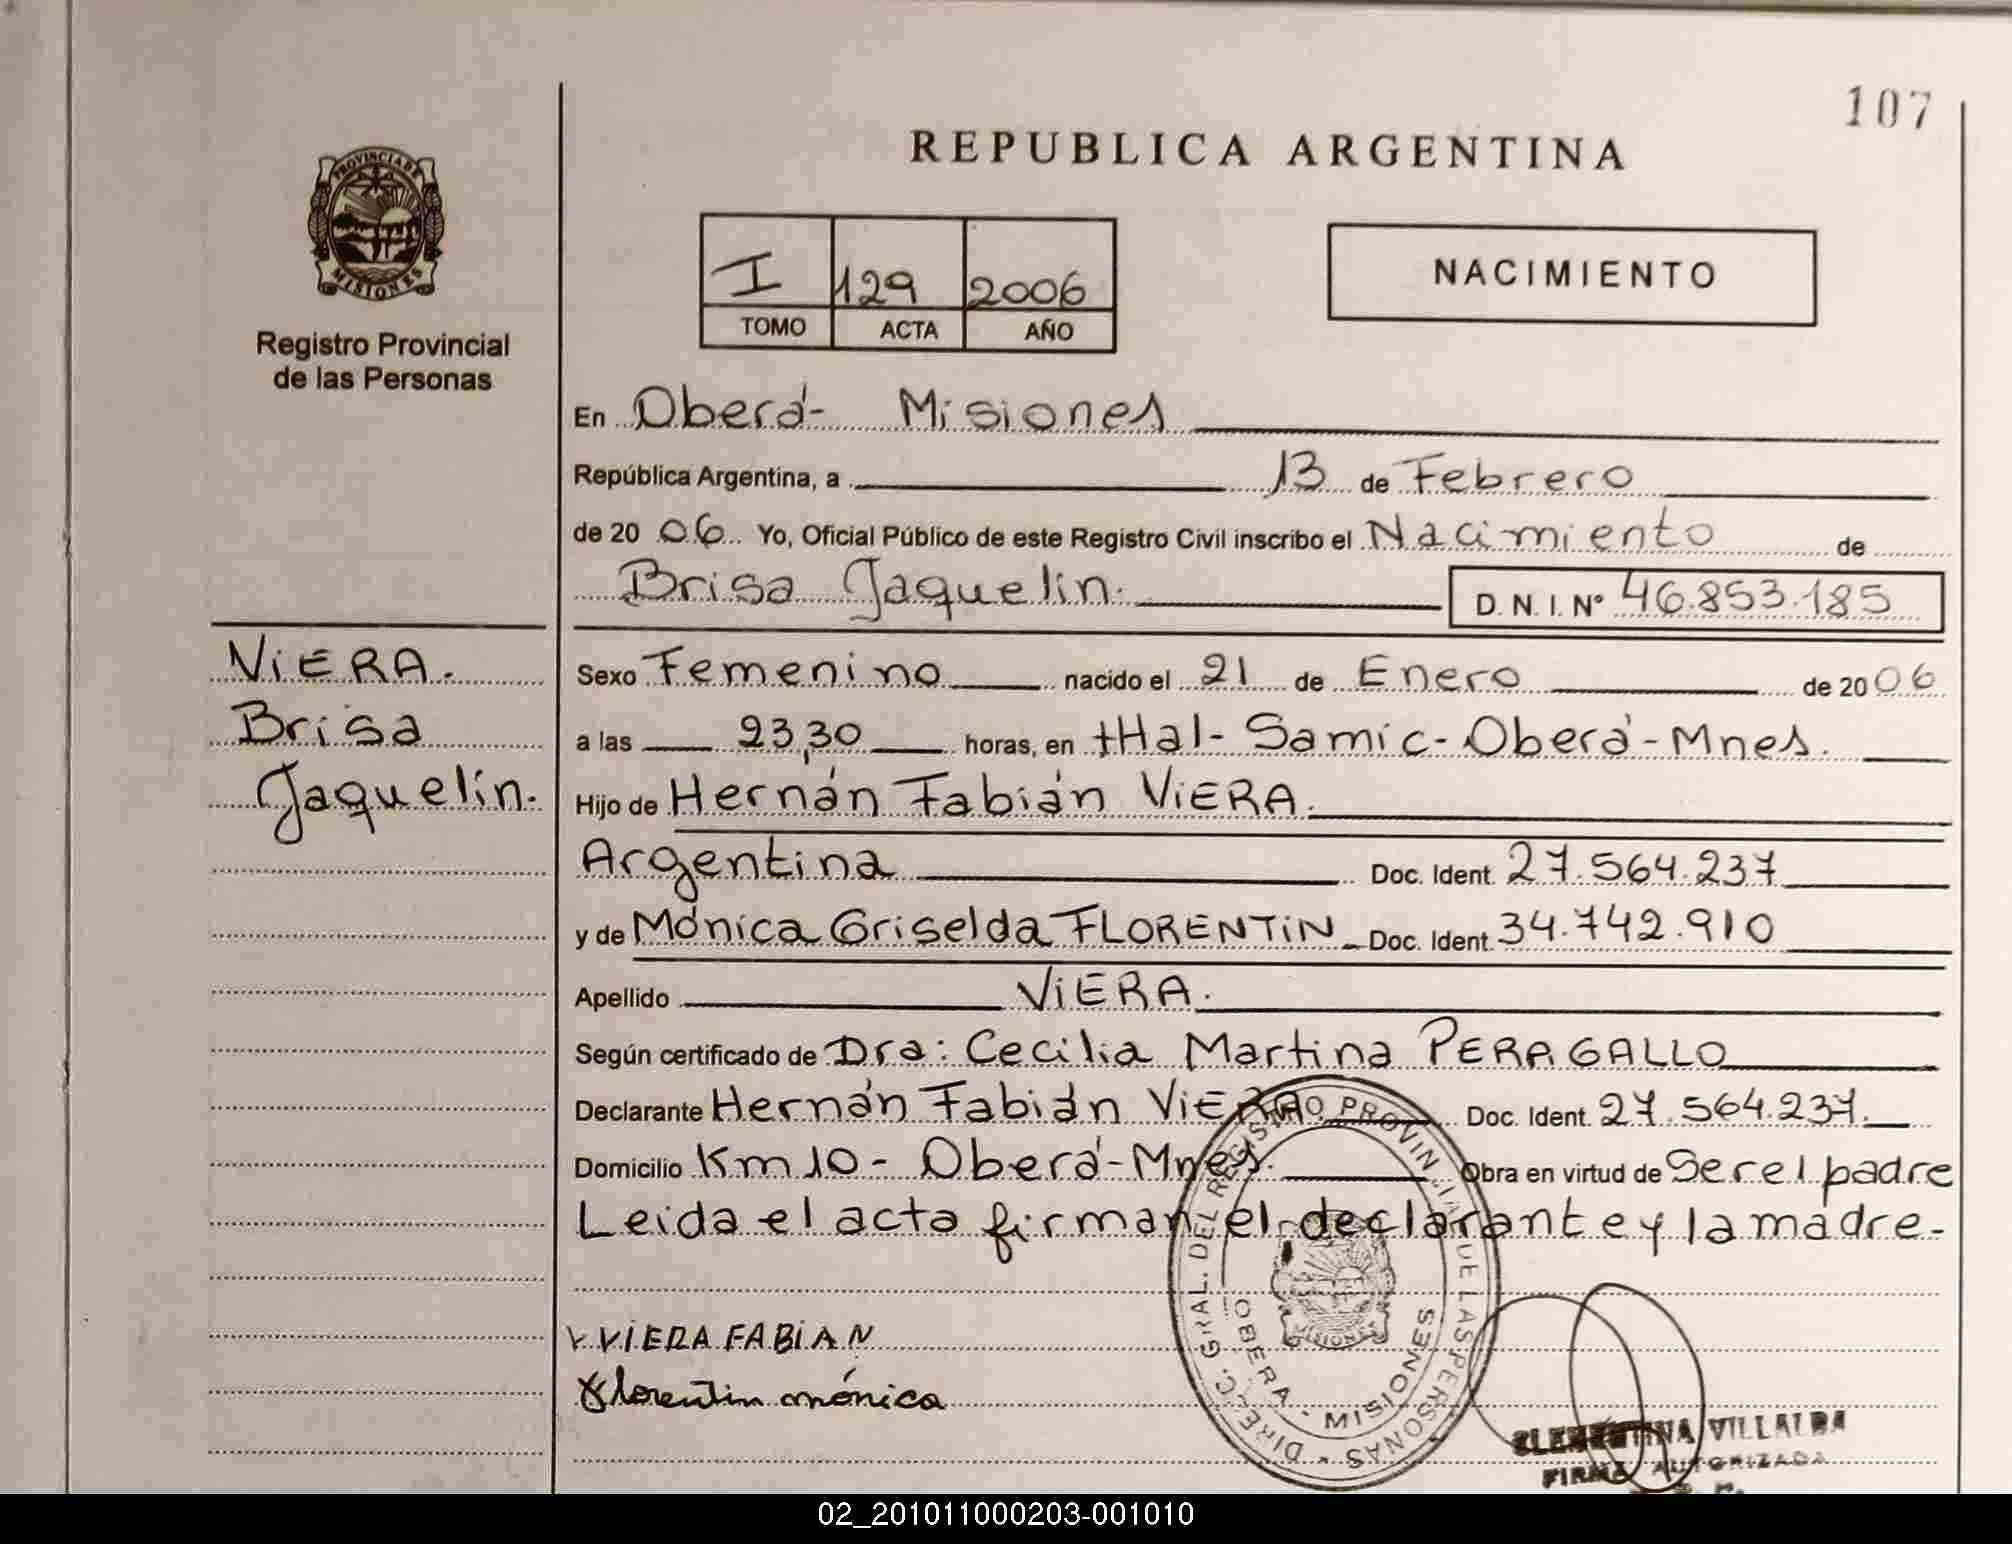 107
REPUBLICA ARGENTINA
PROVINCIA DE
MISIONES
Registro Provincial
de las Personas
I 129 2006
TOMO ACTA AÑO
NACIMIENTO
En Oberá- Misiones
República Argentina, a 13 de Febrero
de 20 06 Yo, Oficial Público de este Registro Civil inscribo el Nacimiento de
Brisa Jaquelin. D. N. I. Nº 46.853.185
VIERA.
Brisa
Jaquelin.
Sexo Femenino nacido el 21 de Enero de 20 06
a las 23,30 horas, en Hal- Samic- Oberá- Mnes.
Hijo de Hernán Fabián VIERA.
Argentina Doc. Ident. 27.564.237
y de Mónica Griselda FLORENTIN Doc. Ident. 34.742.910
Apellido VIERA.
Según certificado de Dra: Cecilia Martina PERAGALLO
Declarante Hernán Fabián VIERA Doc. Ident. 27.564.237.
Domicilio Km 10- Oberá-Mnes. Obra en virtud de Ser el padre
Leida el acta firman el declarante y la madre-
DIREC. GRAL. DEL REGISTRO PROVINCIAL DE LAS PERSONAS
OBERA - MISIONES
MISIONES
VIERA FABIAN
Florentin mónica
CLEMENTINA VILLALBA
FIRMA AUTORIZADA
02_201011000203-001010